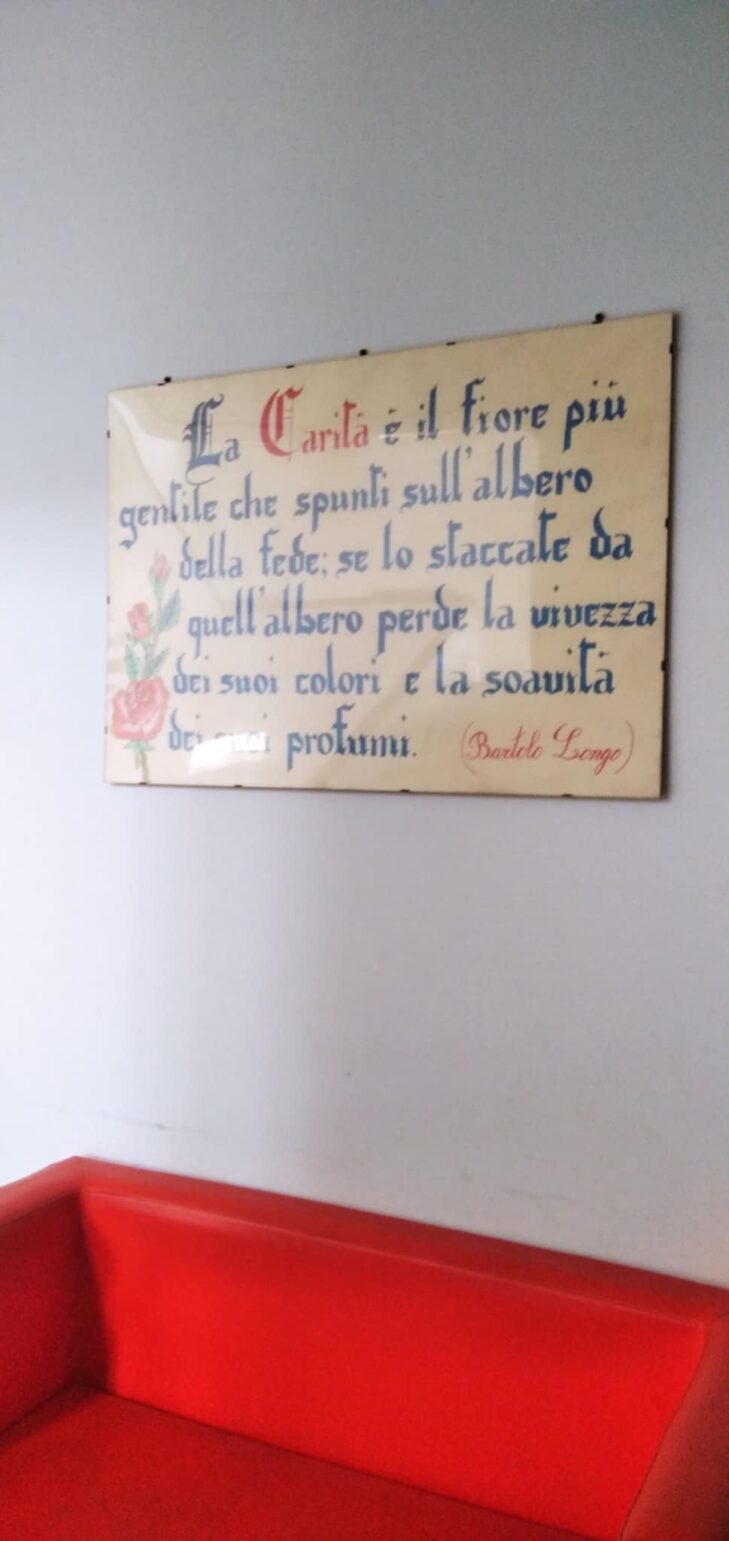 La Carità è il fiore più
gentile che spunti sull'albero
della fede; se lo staccate da
quell'albero perde la vivezza
dei suoi colori e la soavità
dei suoi profumi. (Bartolo Longo)